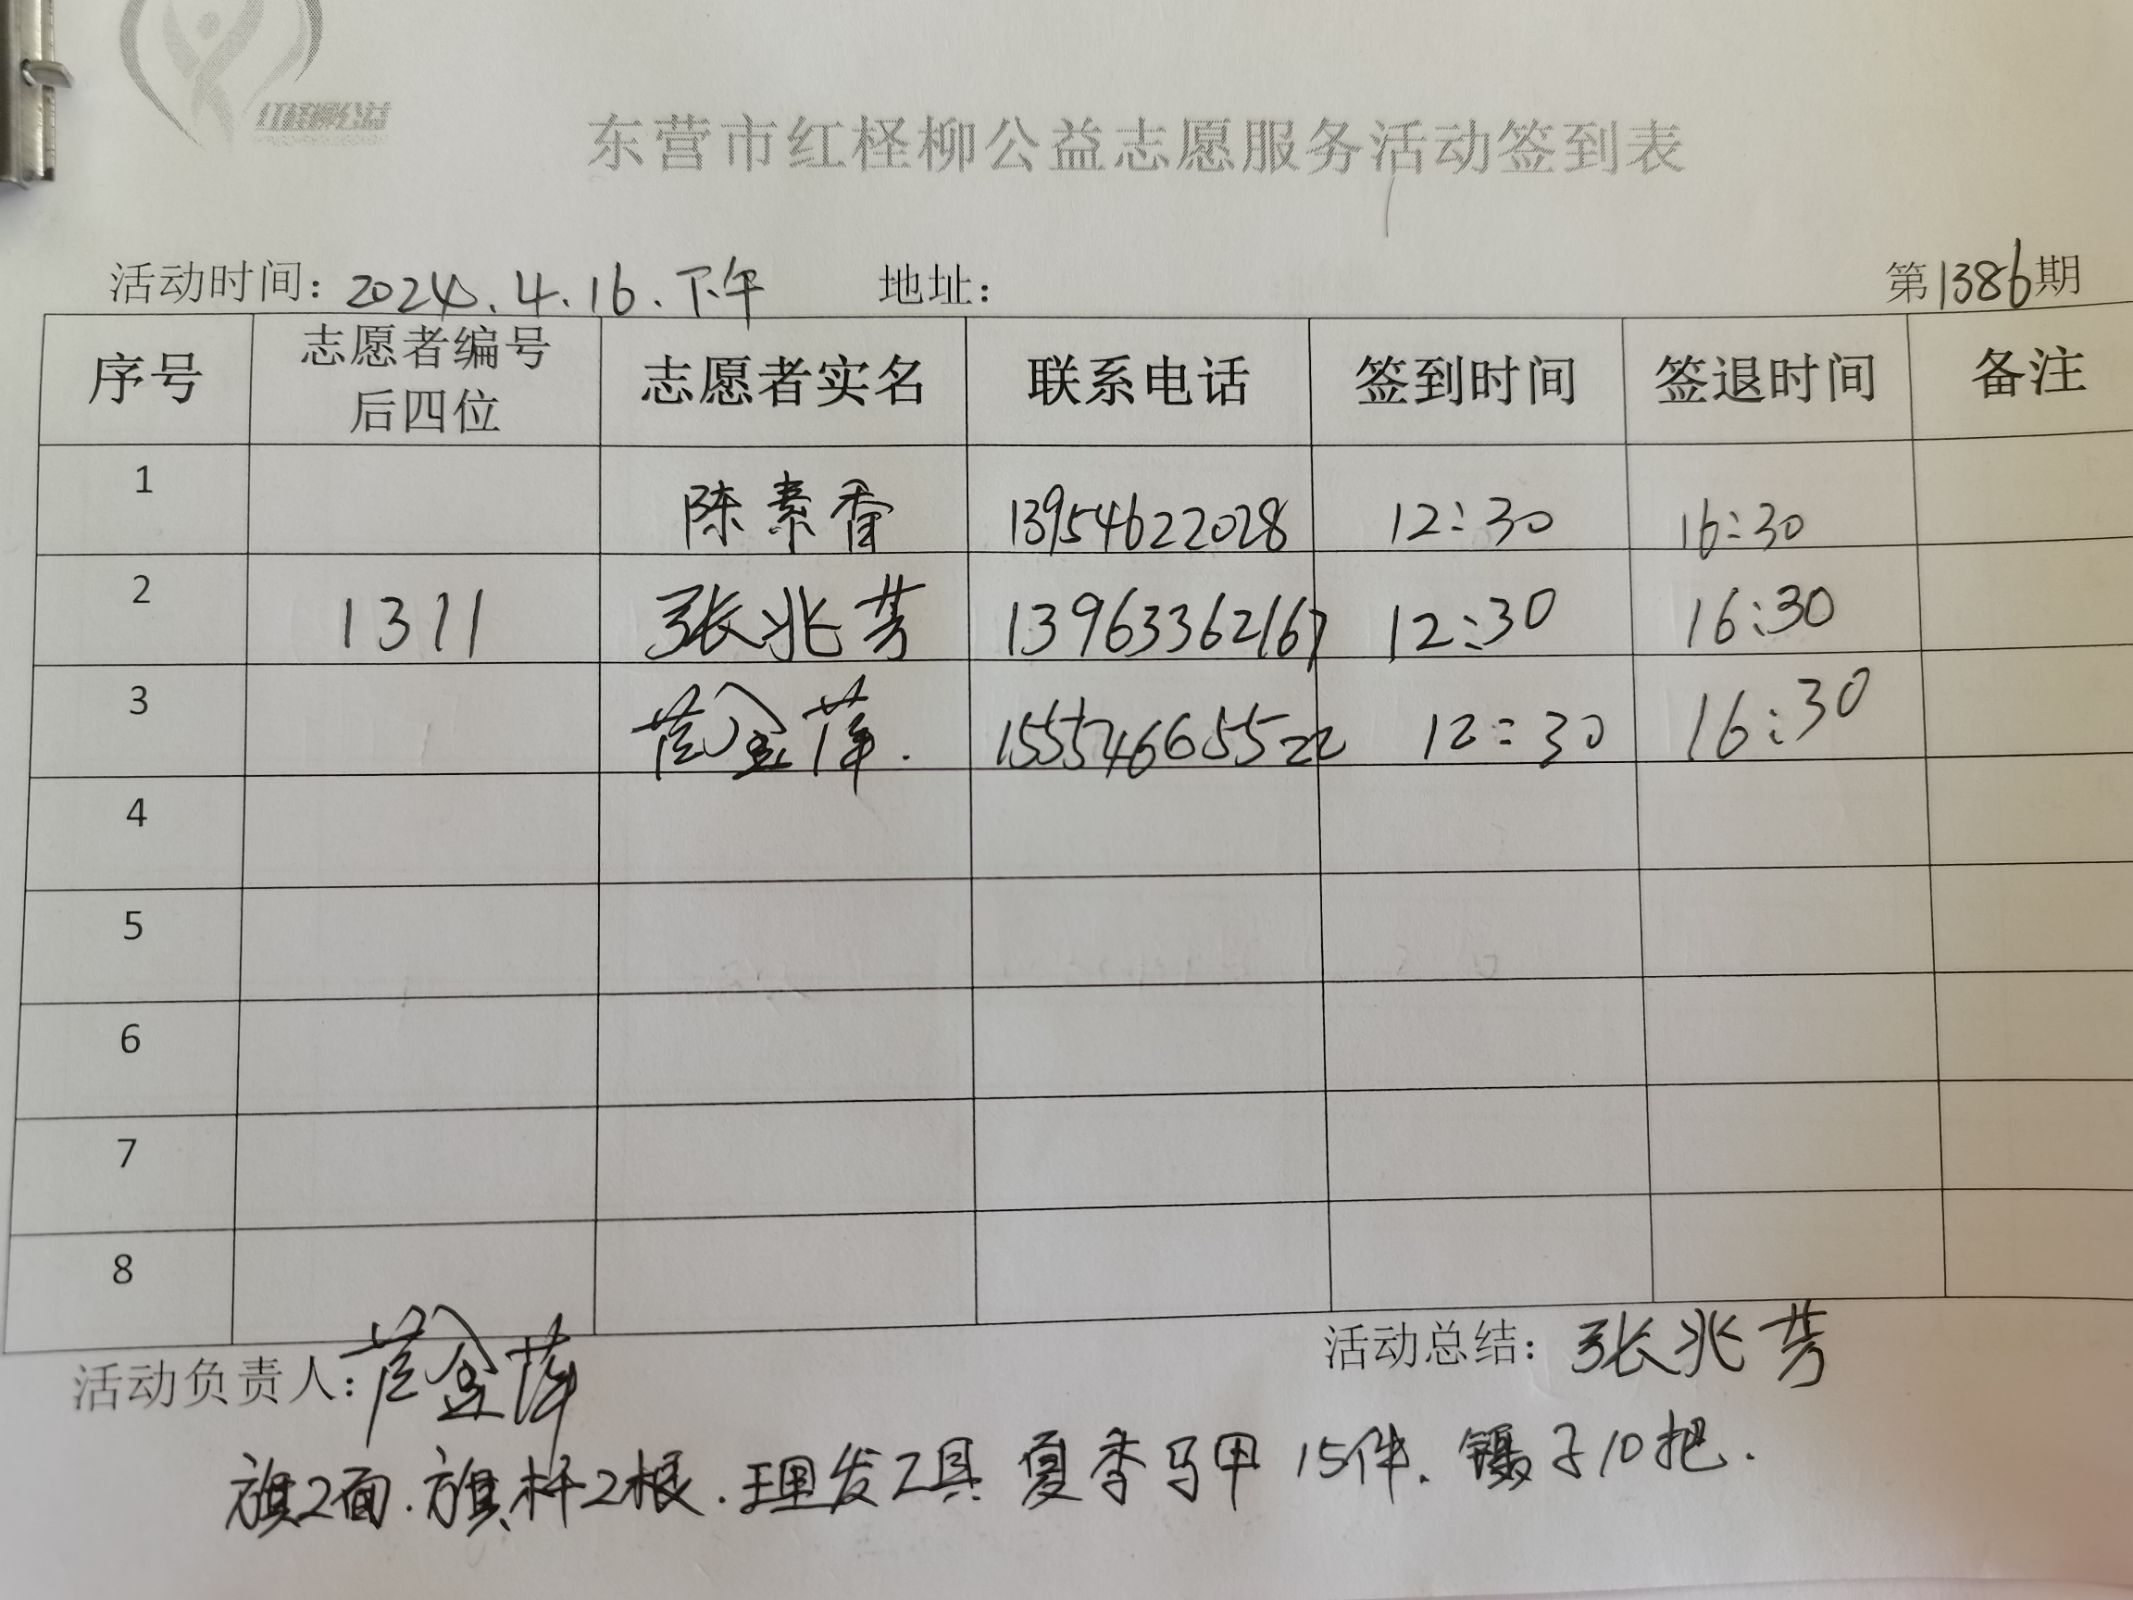 红柽柳公益
东营市红柽柳公益志愿服务活动签到表
活动时间：2024.4.16.下午 地址： 第1386期
序号 志愿者编号后四位 志愿者实名 联系电话 签到时间 签退时间 备注
1 陈素香 13954622028 12:30 16:30
2 1311 张兆芳 13963362167 12:30 16:30
3 金萍. 155574665522 12:30 16:30
4
5
6
7
8
活动负责人：金萍 活动总结：张兆芳
旗2面.旗杆2根.理发工具 夏季马甲 15件.镊子10把.